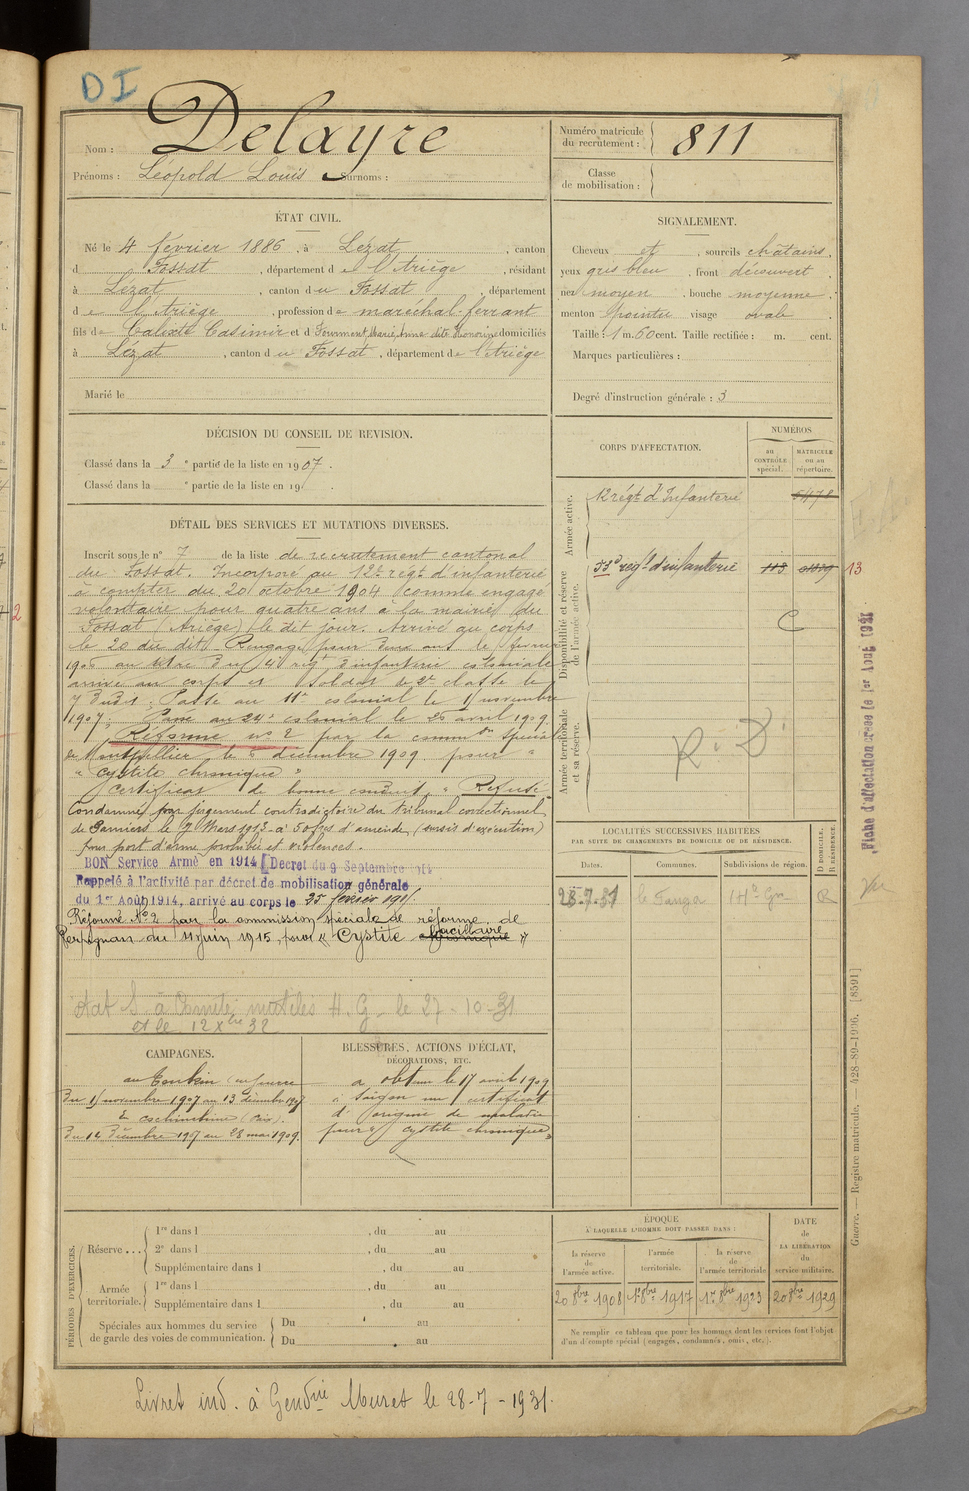 DI
Nom : Delayre
Prénoms : Léopold Louis Surnoms :
Numéro matricule du recrutement : 811
Classe de mobilisation :
ÉTAT CIVIL.
Né le 4 février 1886, à Lézat, canton
d Fossat, département de l'Ariège, résidant
à Lézat, canton du Fossat, département
de l'Ariège, profession de maréchal-ferrant
fils de Calixte Casimir et d Fourment Marie Anne dite Honorine domiciliés
à Lézat, canton du Fossat, département de l'Ariège
Marié le
SIGNALEMENT.
Cheveux et, sourcils châtains,
yeux gris bleu, front découvert,
nez moyen, bouche moyenne,
menton pointu visage ovale
Taille : 1 m. 60 cent. Taille rectifiée : m. cent.
Marques particulières :
Degré d'instruction générale : 3
DÉCISION DU CONSEIL DE REVISION.
Classé dans la 3e partie de la liste en 1907.
Classé dans la e partie de la liste en 19 .
CORPS D'AFFECTATION.
NUMÉROS
au CONTRÔLE spécial.
MATRICULE ou au répertoire.
Armée active.
12 régt d'Infanterie 5478
Disponibilité et réserve de l'armée active.
53e régt d'infanterie 113 13
C
Armée territoriale et sa réserve.
R. D.
DÉTAIL DES SERVICES ET MUTATIONS DIVERSES.
Inscrit sous le n° 7 de la liste de recrutement cantonal
du Fossat. Incorporé au 12e régt d'infanterie
à compter du 20 octobre 1904 comme engagé
volontaire pour quatre ans à la mairie du
Fossat (Ariège) le dit jour. Arrivé au corps
le 20 du dit. Rengagé pour deux ans le février
1906 au 4e régt d'infanterie coloniale
arrivé au corps et soldat de 2e classe le
7 dudit. Passé au 11e colonial le 1er novembre
1907. Passé au 24e colonial le 26 avril 1909.
Réformé n° 2 par la common spéciale
de Montpellier le décembre 1909 pour
" cystite chronique "
Certificat de bonne conduite " Refusé "
Condamné par jugement contradictoire du tribunal correctionnel
de Pamiers le 7 Mars 1913 à 50 frcs d'amende (sursis d'exécution)
pour port d'arme prohibée et violences.
BON Service Armé en 1914 [Décret du 9 Septembre 1914
Rappelé à l'activité par décret de mobilisation générale
du 1er Août 1914, arrivé au corps le 25 février 1915.
Réformé N° 2 par la commission spéciale de réforme de
Perpignan du 11 juin 1915, pour " Cystite bacillaire chronique "
état S à Comité mutilés H. G. le 27-10-31
et le 12 Xbre 32
LOCALITÉS SUCCESSIVES HABITÉES
PAR SUITE DE CHANGEMENTS DE DOMICILE OU DE RÉSIDENCE.
Dates. Communes. Subdivisions de région. D DOMICILE. R RÉSIDENCE.
28-7-31 le Fauga Hte Gne R
vu
CAMPAGNES.
au Tonkin (en guerre
Du 15 novembre 1907 au 13 décembre 1907
& cochinchine (paix).
Du 14 Décembre 1907 au 28 mai 1909.
BLESSURES, ACTIONS D'ÉCLAT,
DÉCORATIONS, ETC.
a obtenu le 17 avril 1909
à Saïgon un certificat
d'origine de maladie
pour " cystite chronique "
PÉRIODES D'EXERCICES.
Réserve ... 1re dans l , du au
2e dans l , du au
Supplémentaire dans l , du au
Armée territoriale. 1re dans l , du au
Supplémentaire dans l , du au
Spéciales aux hommes du service de garde des voies de communication. Du au
Du au
ÉPOQUE
À LAQUELLE L'HOMME DOIT PASSER DANS :
la réserve de l'armée active.
l'armée territoriale.
la réserve de l'armée territoriale
DATE de LA LIBÉRATION du service militaire.
20 8bre 1908 1er 8bre 1917 1er 8bre 1923 20 8bre 1929
Ne remplir ce tableau que pour les hommes dont les services font l'objet
d'un décompte spécial (engagés, condamnés, omis, etc.).
Livret ind. à Gendrie Muret le 28-7-1931.
Fiche d'affectation créée le 1er Août 1931
Guerre. — Registre matricule. — 428-89-1906. [8591]